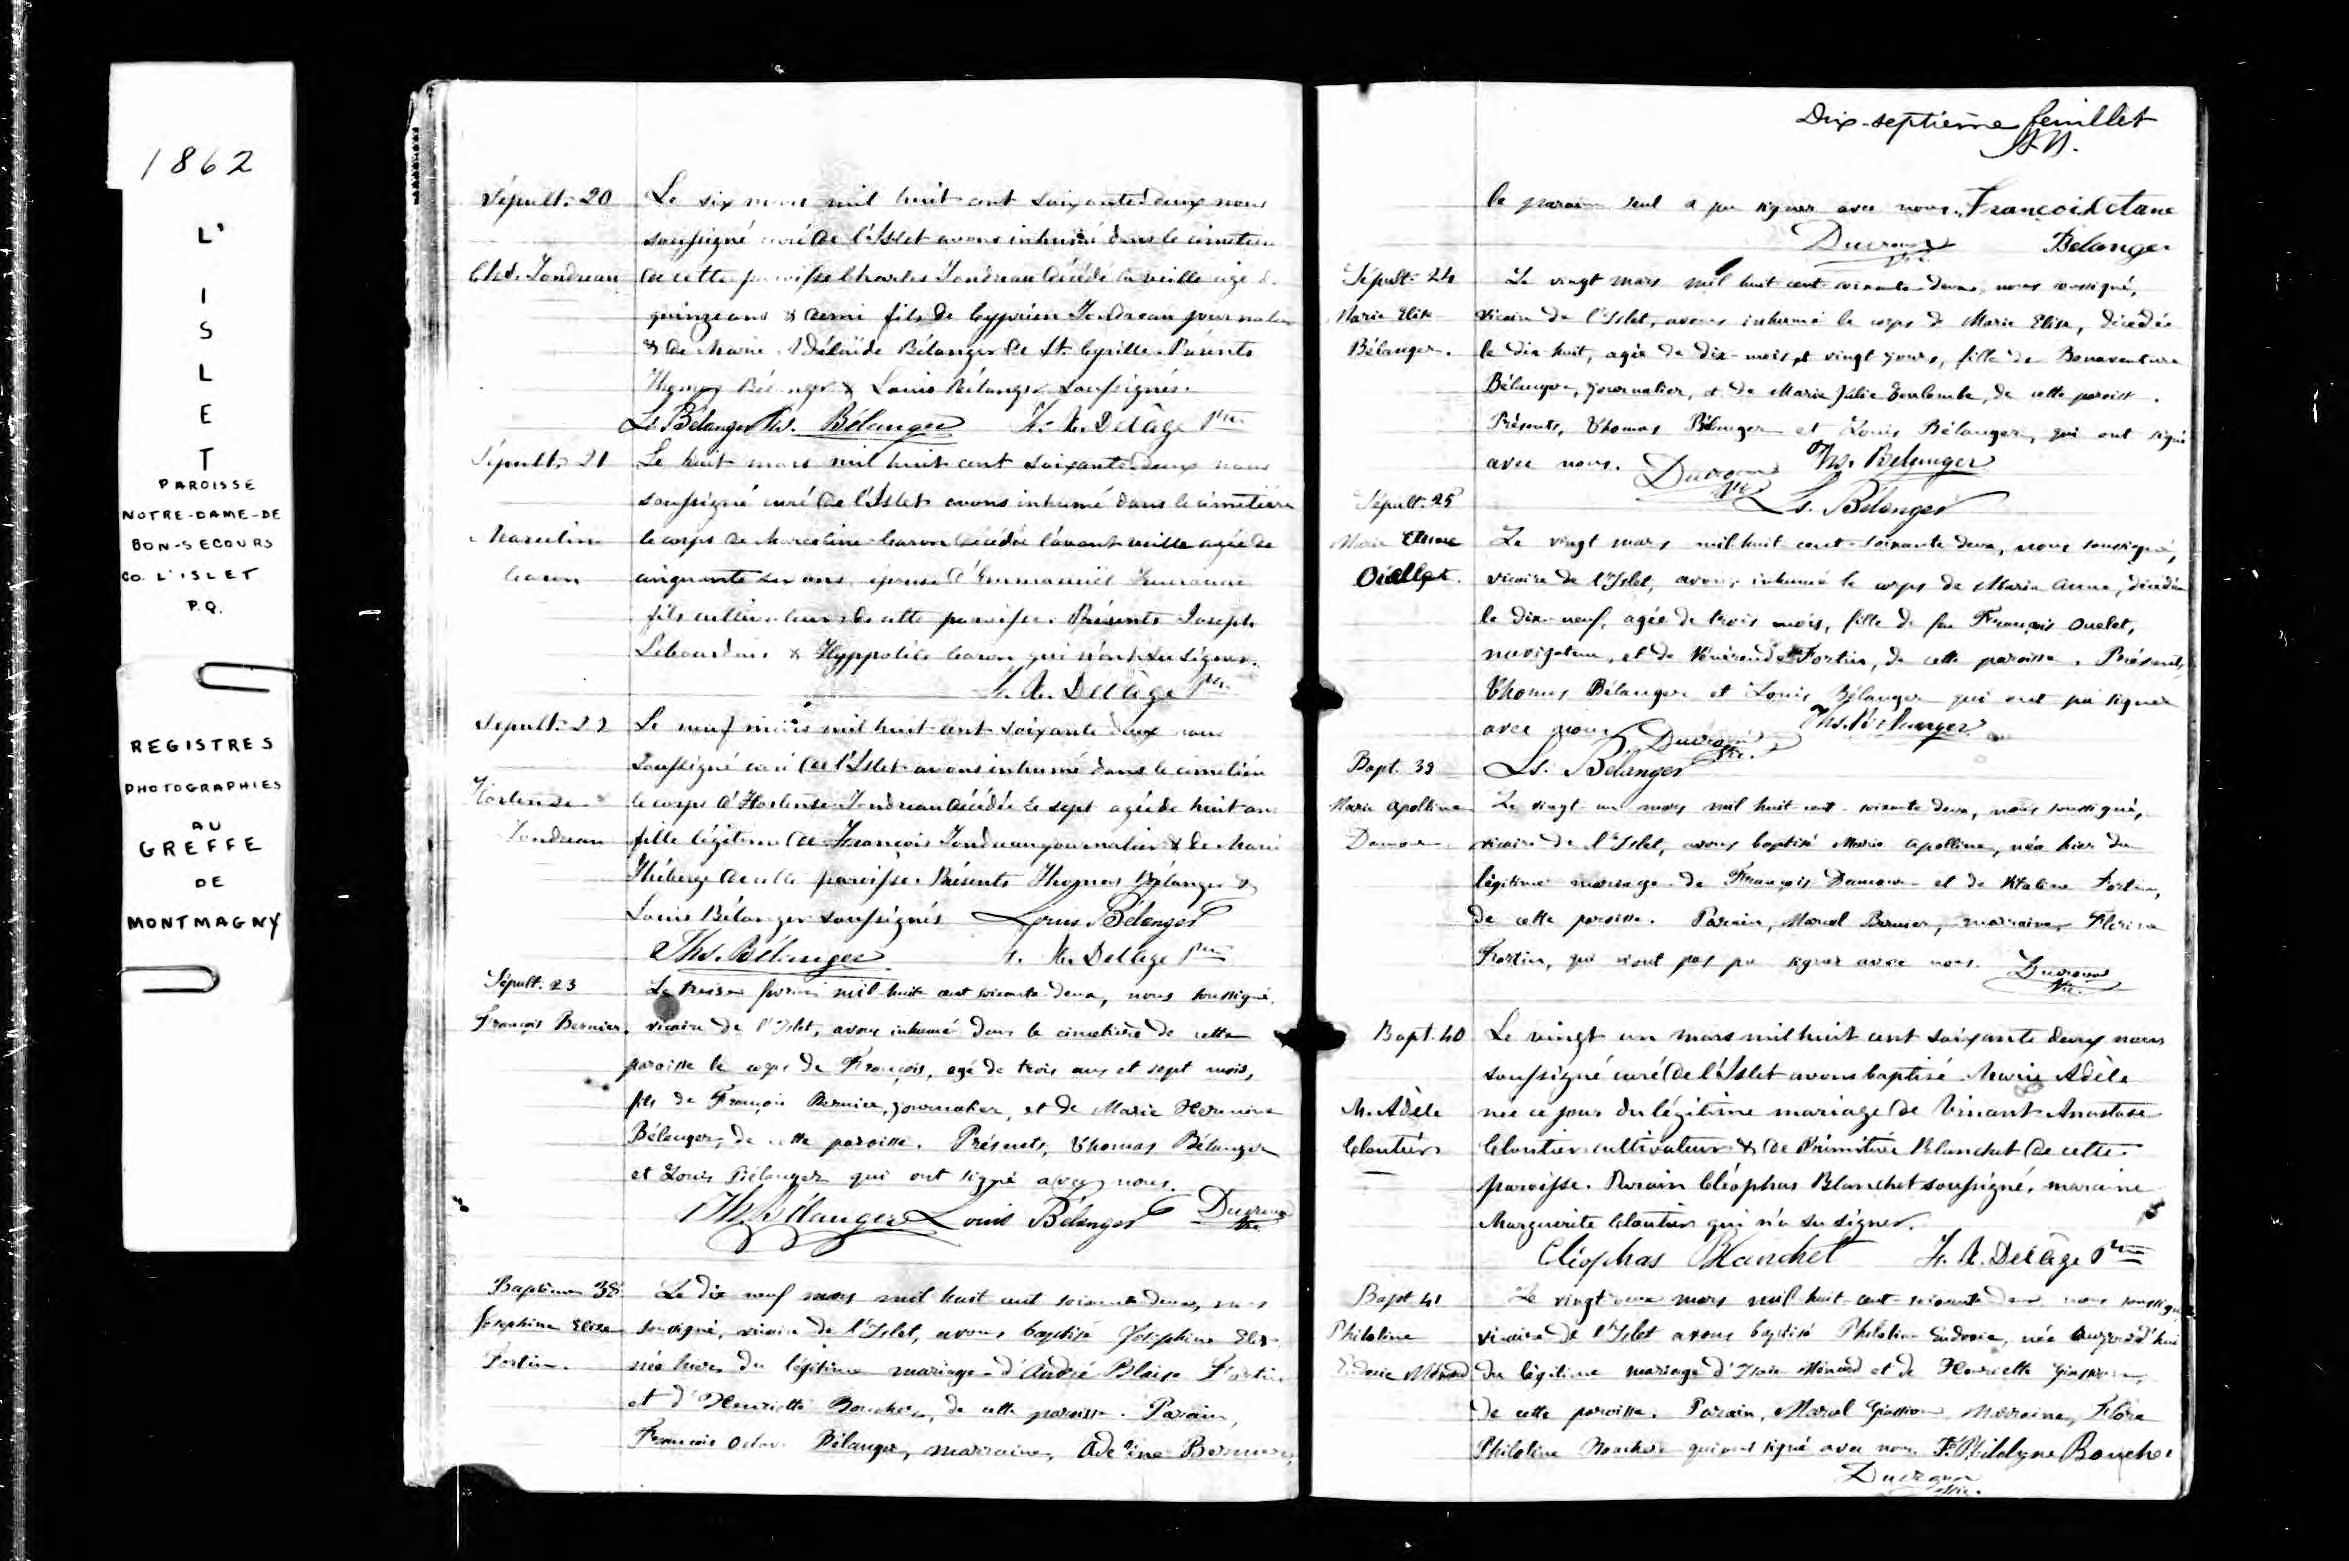 1862
L'
I
S
L
E
T
PAROISSE
NOTRE-DAME-DE
BON-SECOURS
CO. L'ISLET
P.Q.
REGISTRES
PHOTOGRAPHIES
AU
GREFFE
DE
MONTMAGNY
Sépult. 20
Le six mars mil huit cent soixante deux nous
soussigné curé de l'Islet avons inhumé dans le cimetière
Chs. Tondreau
de cette paroisse Charles Tondreau décédé la veille agé de
quinze ans & demi fils de Cyprien Tondreau journalier
& de Marie Adélaïde Bélanger de St. Cyrille. Présents
Thomas Bélanger & Louis Bélanger soussignés.
Ls. Bélanger Ths. Bélanger F. X. Delâge Ptre
Sépult. 21
Le huit mars mil huit cent soixante deux nous
soussigné curé de l'Islet avons inhumé dans le cimetière
Marceline
Caron
le corps de Marceline Caron décédée l'avant veille agée de
cinquante six ans, épouse d'Emmanuel
fils cultivateur de cette paroisse. Présents Joseph
Lebourdais & Hyppolite Caron qui n'ont su signer.
F. X. Delâge Ptre
Sépult. 22
Le neuf mars mil huit cent soixante deux nous
soussigné curé de l'Islet avons inhumé dans le cimetière
Hortense
Tondreau
le corps d'Hortense Tondreau décédée le sept agée de huit ans
fille légitime de François Tondreau journalier & de Marie
Théberge de cette paroisse. Présents Thomas Bélanger &
Louis Bélanger soussignés Louis Bélanger
Ths. Bélanger F. X. Delâge Ptre
Sépult. 23
François Bernier.
Le treize mil huit cent soixante deux, nous soussigné,
vicaire de l'Islet, avons inhumé dans le cimetière de cette
paroisse le corps de François, agé de trois ans et sept mois,
fils de François Bernier, journalier, et de Marie Hermine
Bélanger, de cette paroisse. Présents, Thomas Bélanger
et Louis Bélanger qui ont signé avec nous.
Ths. Bélanger Louis Bélanger
Baptême 38
Josephine Eliza
Fortin.
Le dix neuf mars mil huit cent soixante deux, nous
soussigné, vicaire de l'Islet, avons baptisé Josephine Eliza
née hier du légitime mariage d'André Blaise Fortin
et d'Henriette Boucher, de cette paroisse. Parain,
François Octave Bélanger, marraine, Adeline Bernier,
Dix-septième feuillet
le parain seul a pu signer avec nous. François Octave
Bélanger
Sépult. 24
Marie Elise
Bélanger.
Le vingt mars mil huit cent soixante deux, nous soussigné,
vicaire de l'Islet, avons inhumé le corps de Marie Elise, décédée
le dix huit, agée de dix mois et vingt jours, fille de Bonaventure
Bélanger, journalier, et de Marie Julie de cette paroisse.
Présents, Thomas Bélanger et Louis Bélanger, qui ont signé
avec nous. Ths. Bélanger
Ls. Bélanger
Sépult. 25
Marie
Ouellet.
Le vingt mars mil huit cent soixante deux, nous soussigné,
vicaire de l'Islet, avons inhumé le corps de Marie Anne, décédée
le dix-neuf, agée de trois mois, fille de feu François Ouelet,
navigateur, et de Fortin, de cette paroisse. Présents,
Thomas Bélanger et Louis Bélanger qui ont pu signer
avec nous Ths. Bélanger
Ls. Bélanger
Bapt. 39
Marie Apolline
Le vingt un mars mil huit cent soixante deux, nous soussigné,
vicaire de l'Islet, avons baptisé Marie Apolline, née hier du
légitime mariage de François et de Fortin,
de cette paroisse. Parain, Marcel Bernier, marraine,
Fortin, qui n'ont pas pu signer avec nous.
Bapt. 40
M. Adèle
Cloutier
Le vingt un mars mil huit cent soixante deux nous
soussigné curé de l'Islet avons baptisé Marie Adèle
née ce jour du légitime mariage de Vincent Anastase
Cloutier cultivateur & de Primitive Blanchet de cette
paroisse. Parain Cléophas Blanchet soussigné, maraine
Marguerite Cloutier qui n'a su signer.
Cléophas Blanchet F. X. Delâge Ptre
Bapt. 41
Philoline
Ménard
Le vingt mars mil huit cent soixante deux nous soussigné
vicaire de l'Islet avons baptisé née aujourd'hui
du légitime mariage d' Ménard et de Henriette Giasson,
de cette paroisse. Parain, Marcel Giasson, marraine, Flore
Philoline Boucher qui ont signé avec nous. F. Philolyne Boucher